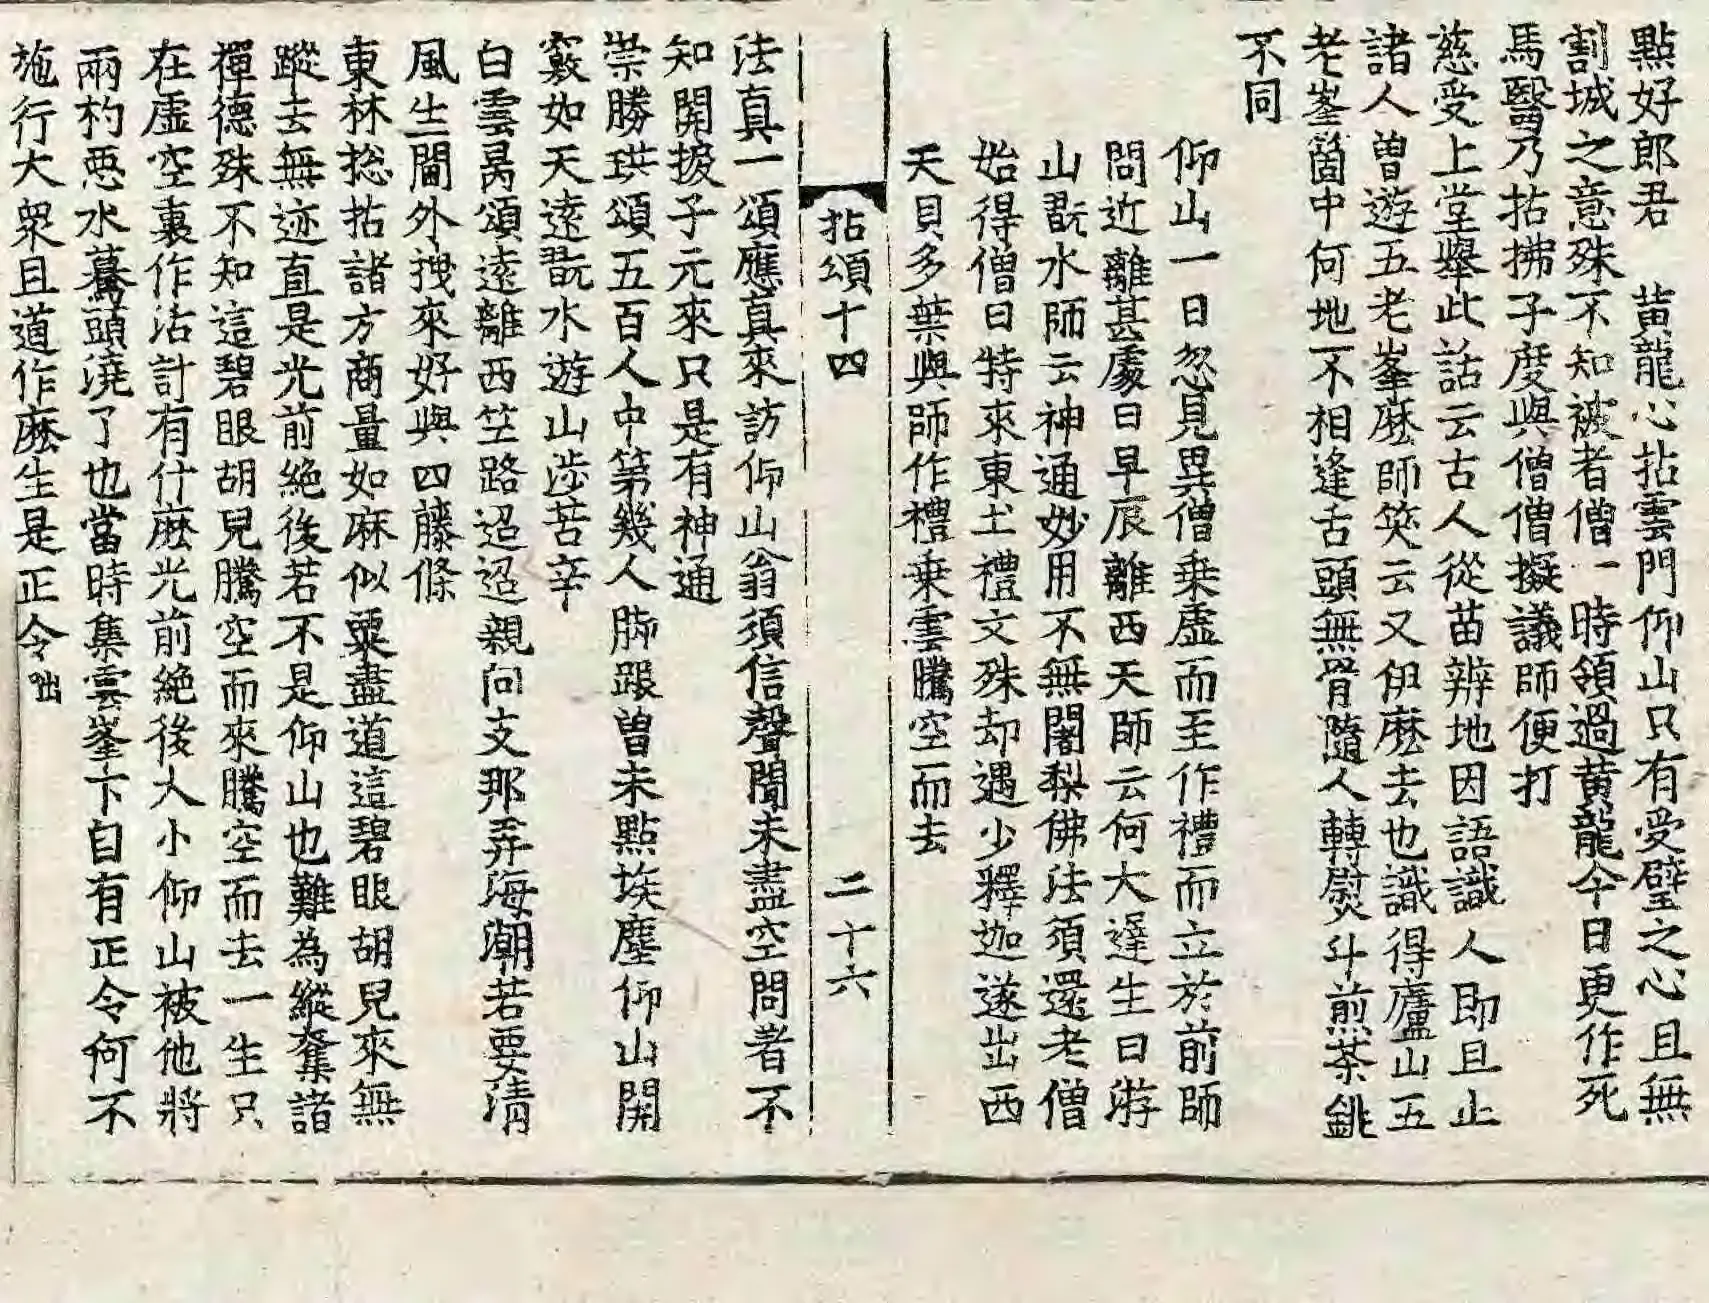 點好郎君　黃龍心拈雲門仰山只有受璧之心且無
割城之意殊不知被者僧一時領過黃龍今日更作死
馬醫乃拈拂子度與僧僧擬議師便打
慈受上堂擧此話云古人從苗辨地因語識人即且止
諸人曽遊五老峯麽師笑云又伊麽去也識得廬山五
老峯箇中何地不相逢舌頭無骨隨人轉熨斗煎茶銚
不同
仰山一日忽見異僧乗虛而至作禮而立於前師
問近離甚處曰早辰離西天師云何大遟生曰游
山翫水師云神通妙用不無闍梨佛法須還老僧
始得僧曰特來東土禮文殊却遇少釋迦遂出西
天貝多葉與師作禮乗雲騰空而去
拈頌十四　二十六
法真一頌應真來訪仰山翁須信聲聞未盡空問者不
知開掖子元來只是有神通
崇勝珙頌五百人中第幾人脚跟曽未點埃塵仰山開
竅如天遠翫水遊山涉苦辛
白雲昺頌遠離西竺路迢迢親向支那弄海潮若要淸
風生閫外拽來好與四藤條
東林揔拈諸方商量如麻似粟盡道這碧眼胡兒來無
蹤去無迹直是光前絶後若不是仰山也難為縱奪諸
禪德殊不知這碧眼胡兒騰空而來騰空而去一生只
在虛空裏作活計有什麽光前絶後大小仰山被他將
兩杓惡水驀頭澆了也當時集雲峯下自有正令何不
施行大衆且道作麽生是正令咄